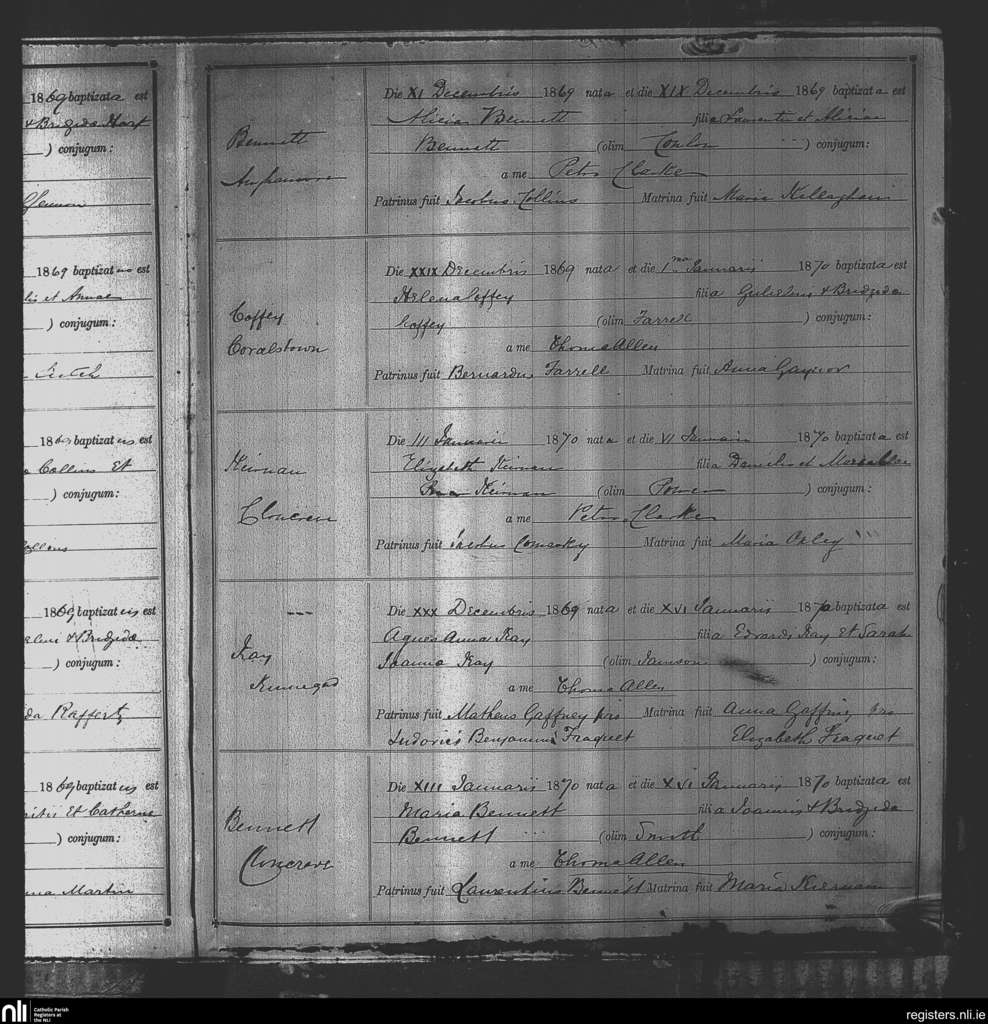 1869 baptizata est
& Bridgida Hart
) conjugum:
1869 baptizatus est
et Annae
) conjugum:
baptizatus est
Collins et
) conjugum:
1869 baptizatus est
& Bridgida
) conjugum:
Rafferty
1869 baptizatus est
et Catherine
) conjugum:
Martin
Bennett
Die XI Decembris 1869 nata et die XIX Decembris 1869 baptizata est
Alicia Bennett filia Laurentii et Aliciae
Bennett (olim Conlon ) conjugum:
a me Petro Clarke
Patrinus fuit Jacobus Collins Matrina fuit Maria Killaghan
Coffey
Coralstown
Die XXIX Decembris 1869 nata et die 1ma Januarii 1870 baptizata est
Helena Coffey filia Gulielmi & Bridgida
Coffey (olim Farrell ) conjugum:
a me Thoma Allen
Patrinus fuit Bernardus Farrell Matrina fuit Anna Gaynor
Keirnan
Cloncren
Die III Januarii 1870 nata et die VI Januarii 1870 baptizata est
Elizabeth Keirnan filia Danielis et
Keirnan (olim Power ) conjugum:
a me Petro Clarke
Patrinus fuit Jacobus Comesky Matrina fuit Maria Oxley
Kay
Kinnegad
Die XXX Decembris 1869 nata et die XVI Januarii 1870 baptizata est
Agnes Anna Kay filia Edvardi Kay et Sarah
Joanna Kay (olim Jamson ) conjugum:
a me Thoma Allen
Patrinus fuit Matheus Gaffney pro Matrina fuit Anna Gaffney pro
Ludovics Benjamin Fraquet Elizabeth Fraquet
Bennett
Cloncrave
Die XIII Januarii 1870 nata et die XVI Januarii 1870 baptizata est
Maria Bennett filia Joannis & Bridgida
Bennett (olim Smith ) conjugum:
a me Thoma Allen
Patrinus fuit Laurentius Bennett Matrina fuit Maria Kiernan
nli Catholic Parish
Registers at
the NLI
registers.nli.ie